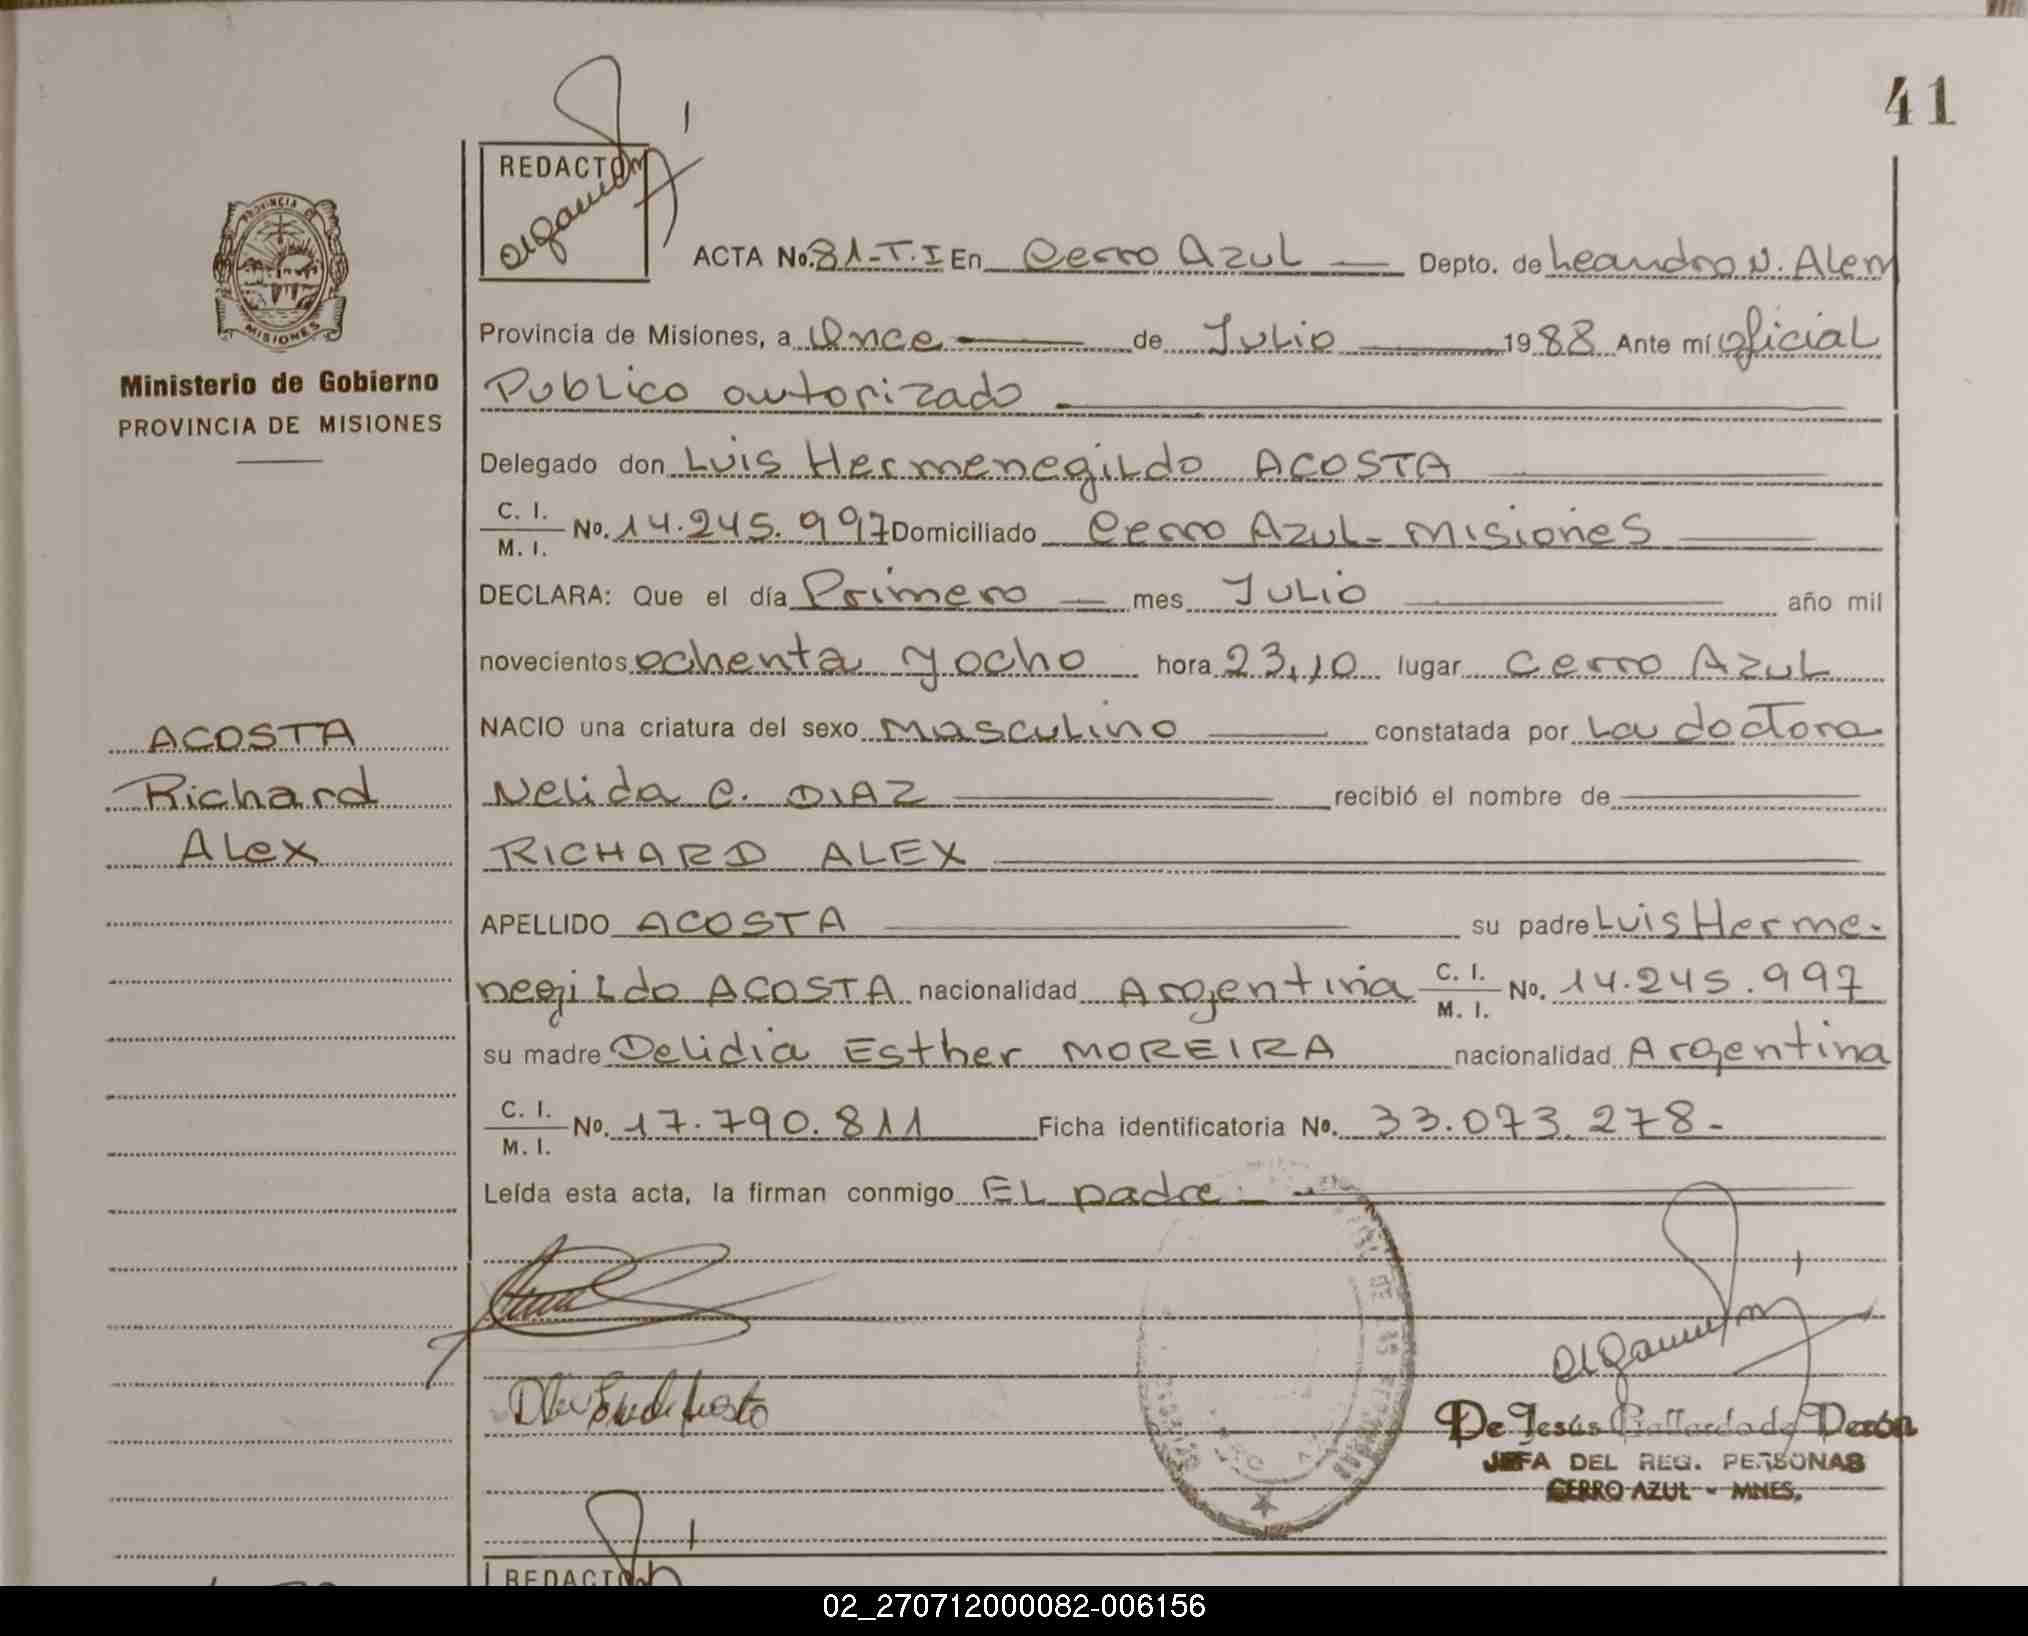 41
REDACTO
PROVINCIA DE
MISIONES
Ministerio de Gobierno
PROVINCIA DE MISIONES
ACTA No. 81-T.I En Cerro Azul Depto. de Leandro N. Alem
Provincia de Misiones, a Once de Julio 1988 Ante mí oficial
Publico autorizado
Delegado don Luis Hermenegildo ACOSTA
C. I. / M. I. No. 14.245.997 Domiciliado Cerro Azul - Misiones
DECLARA: Que el día Primero mes Julio año mil
novecientos ochenta y ocho hora 23,10 lugar Cerro Azul
NACIO una criatura del sexo masculino constatada por La doctora
Nelida C. DIAZ recibió el nombre de
RICHARD ALEX
APELLIDO ACOSTA su padre Luis Herme-
negildo ACOSTA nacionalidad Argentina C. I. / M. I. No. 14.245.997
su madre Delidia Esther MOREIRA nacionalidad Argentina
C. I. / M. I. No. 17.790.811 Ficha identificatoria No. 33.073.278-
Leída esta acta, la firman conmigo EL padre
ACOSTA
Richard
Alex
De Jesús Gallardo de Perón
JEFA DEL REG. PERSONAS
CERRO AZUL - MNES.
REDACTO
02_270712000082-006156